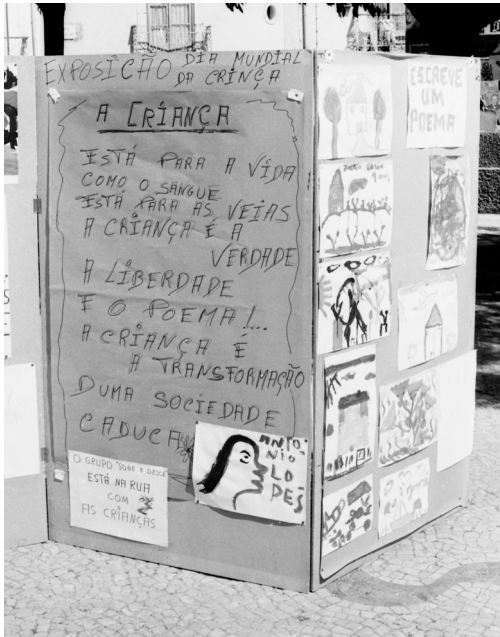 EXPOSIÇÃO DIA MUNDIAL
DA CRINÇA
A CRIANÇA
ESTÁ PARA A VIDA
COMO O SANGUE
ESTÁ PARA AS VEIAS
A CRIANÇA É A
VERDADE
A LIBERDADE
E O POEMA!...
A CRIANÇA É
A TRANSFORMAÇÃO
DUMA SOCIEDADE
CADUCA
ANTO
NIO
LO
PES
O GRUPO "SOBE E DESCE"
ESTÁ NA RUA
COM
AS CRIANÇAS
ESCREVE
UM
POEMA